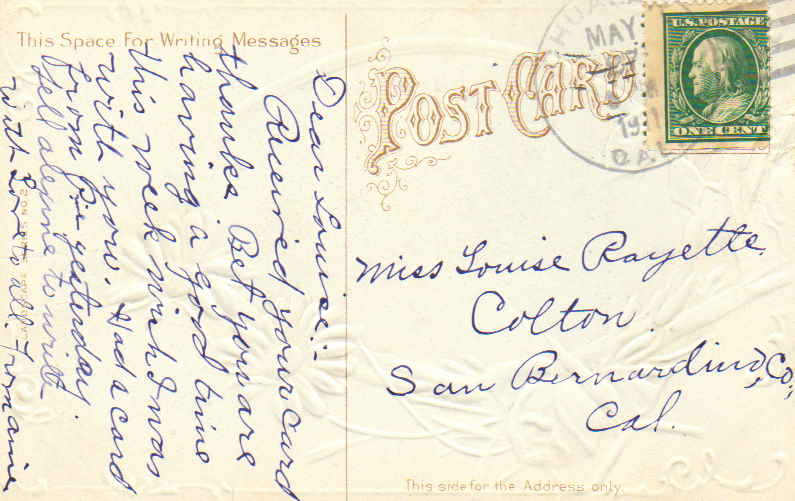 This Space For Writing Messages
POST CARD
U.S. POSTAGE
ONE CENT
MAY
27
191
CAL
Dear Louise:-
Received your card
thanks. Bet you are
having a good time
this week wish I was
with you. Had a card
from yesterday.
tell to write
with love to all. Romaine
Miss Louise Rayette
Colton
San Bernardino, Co,
Cal.
This side for the Address only